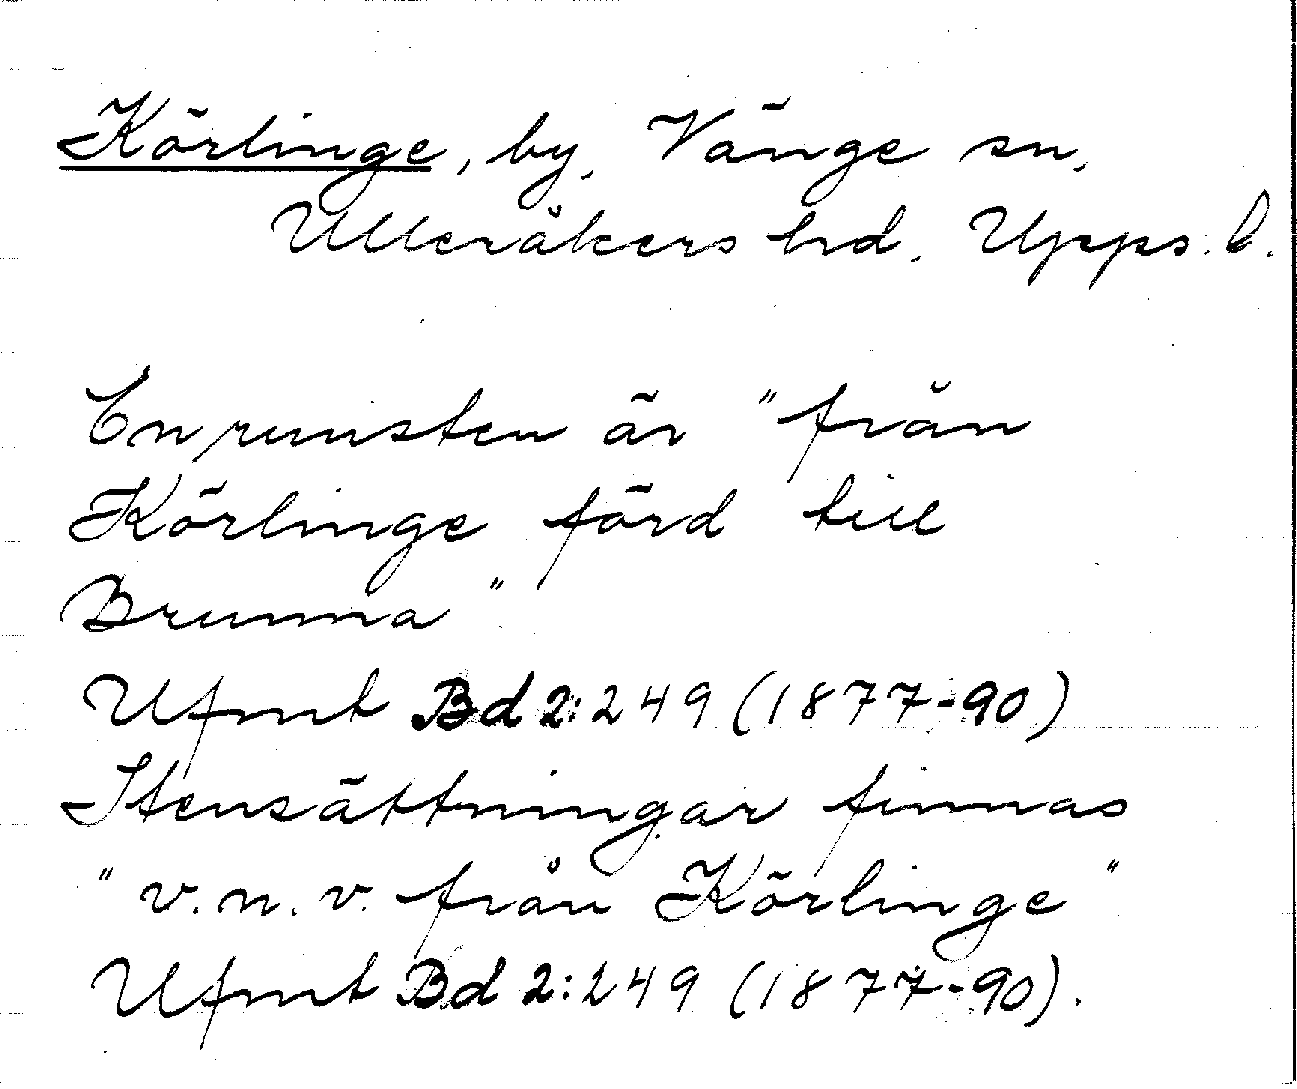 Körlinge, by, Vänge sn,
Ulleråkers hd. Upps. l.
En runsten är "från
Körlinge förd till
Brunna"
Ufmt Bd 2:249 (1877-90)
Stensättningar finnas
"v.n.v. från Körlinge"
Ufmt Bd 2:249 (1877-90).